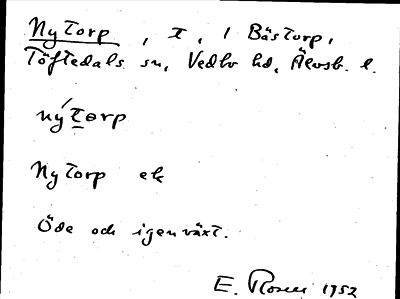 Nytorp, t, / Bästorp,
Töftedals sn, Vedbo hd, Älvsb. l.
nýtorp
Nytorp ek
Öde och igenväxt.
E. Rosell 1952